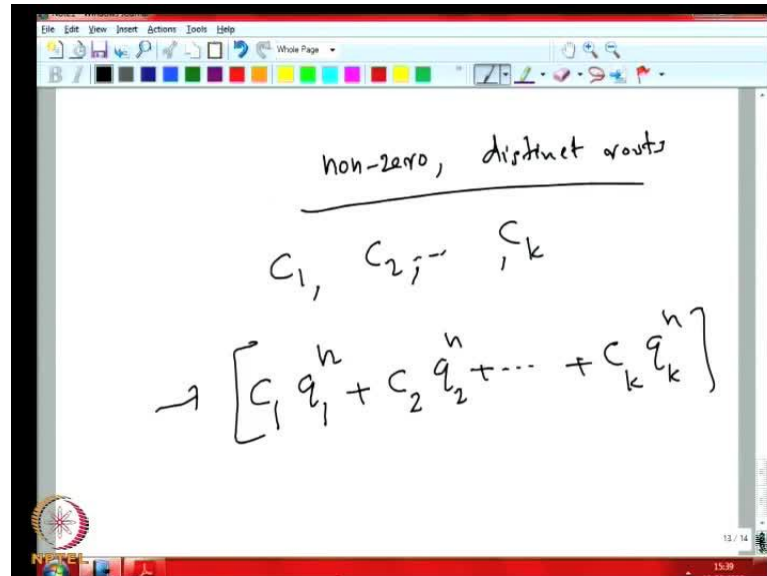 File Edit View Insert Actions Tools Help
Whole Page
B I
non-zero, distinct roots
C₁, C₂, ..., Cₖ
→ [C₁ q₁ⁿ + C₂ q₂ⁿ + ... + Cₖ qₖⁿ]
13 / 14
NPTEL
15:39